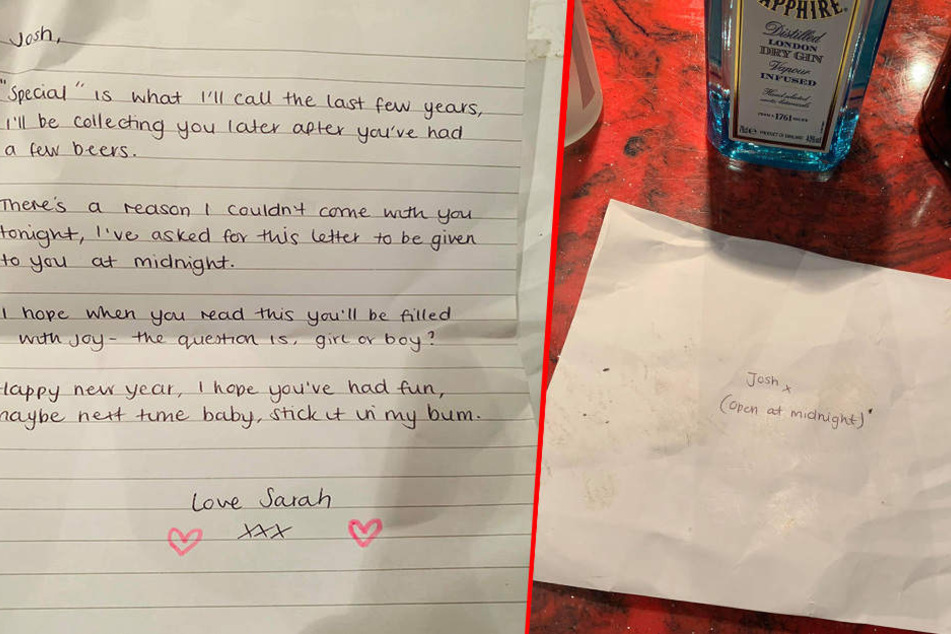 Josh,
"Special" is what I'll call the last few years,
I'll be collecting you later after you've had
a few beers.
There's a reason I couldn't come with you
tonight, I've asked for this letter to be given
to you at midnight.
I hope when you read this you'll be filled
with joy - the question is, girl or boy?
Happy new year, I hope you've had fun,
maybe next time baby, stick it in my bum.
Love Sarah
xxx
SAPPHIRE
Distilled
LONDON
DRY GIN
Vapour
INFUSED
1761
PRODUCT OF ENGLAND
Josh x
(open at midnight)